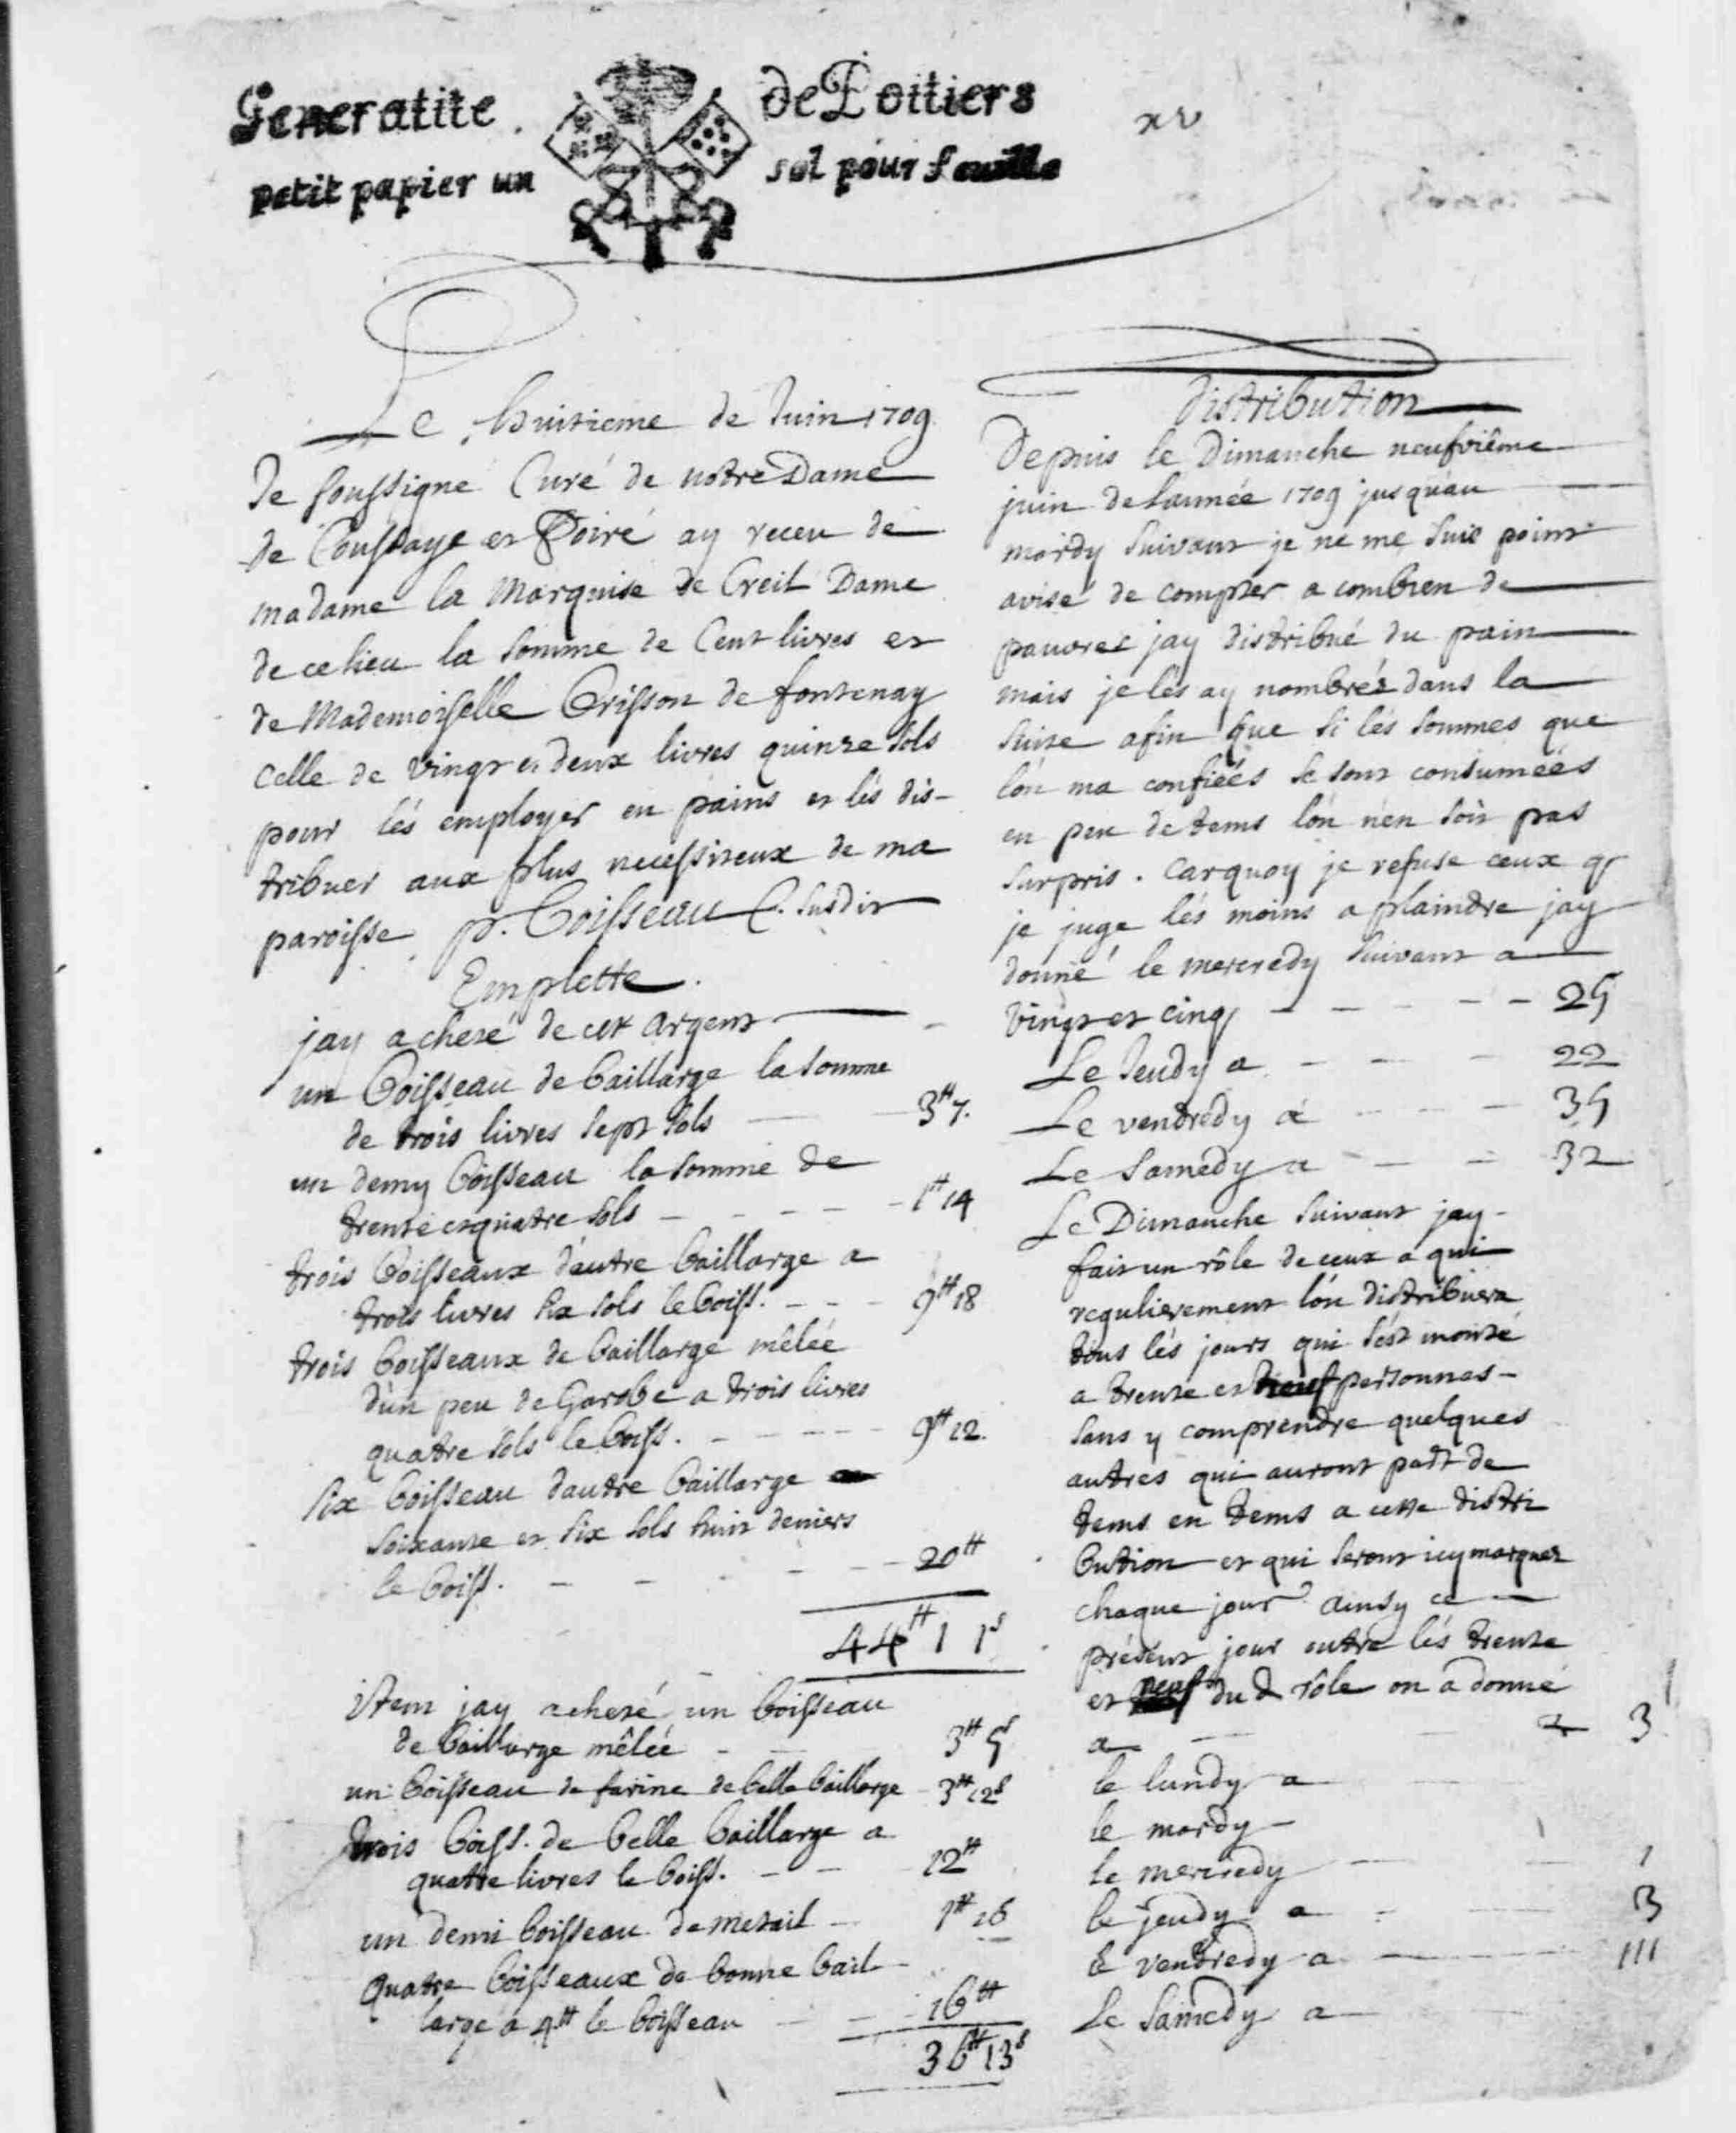 Generalite de Poitiers
petit papier un sol pour feuille
xv
Le huitieme de Juin 1709
Je soussigné Curé de notre Dame
de Coussaye et Poiré ay receu de
madame la Marquise de Creil Dame
de ce lieu la somme de Cent livres et
de Mademoiselle Brisson de fontenay
celle de vingt et deux livres quinze sols
pour lés employer en pains et lés dis-
tribuer aux plus necessiteux de ma
paroisse p. Boisseau C. susdit
Emplette.
jay acheté de cet argent
un boisseau de baillarge la somme
de trois livres sept sols 3tt 7.
un demy boisseau la somme de
trente et quatre sols 1tt 14
trois boisseaux dautre baillarge a
trois livres six sols le boiss. 9tt 18
trois boisseaux de baillarge mêlée
d'un peu de Garobe a trois livres
quatre sols le boiss. 9tt 12.
six boisseau dautre baillarge
soixante et six sols huit deniers
le boiss. 20tt
44tt 11s
item jay acheté un boisseau
de baillarge mêlée 3tt 5s
un boisseau de farine de belle baillarge 3tt 12s
trois boiss. de belle baillarge a
quatre livres le boiss. 12tt
un demi boisseau de metail 1tt 16
quatre boisseaux de bonne bail-
large a 4tt le boisseau 16tt
36tt 13s
distribution
Depuis le Dimanche neufviême
juin de lannée 1709 jusquau
mardy suivant je ne me suis point
avisé de compter a combien de
pauvres jay distribué du pain
mais je lés ay nombrés dans la
suite afin que si lés sommes que
lón ma confiéés se sont consuméés
en peu de tems lón nén soit pas
surpris. Carquoy je refuse ceux q
je juge lés moins a plaindre jay
donné le mercredy suivant a
vingt et cinq 25
Le Jeudy a 22
Le vendredy a 35
Le samedy a 32
Le Dimanche suivant jay
fait un rôle de ceux a qui
regulierement lón distribuera
tous lés jours qui sést monté
a trente et neuf personnes
sans y comprendre quelques
autres qui auront part de
tems en tems a cette distri
bution et qui seront icy marquez
chaque jour ainsy ce
présent jour outre lés trente
et neuf du d rôle on a donné
a 3
le lundy a
le mardy
le mercredy 1
le jeudy a 3
le vendredy a III
Le samedy a